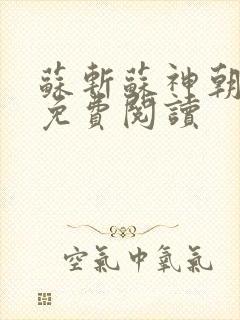 蘇斬蘇神朝
免費閱讀
空氣中氧氣